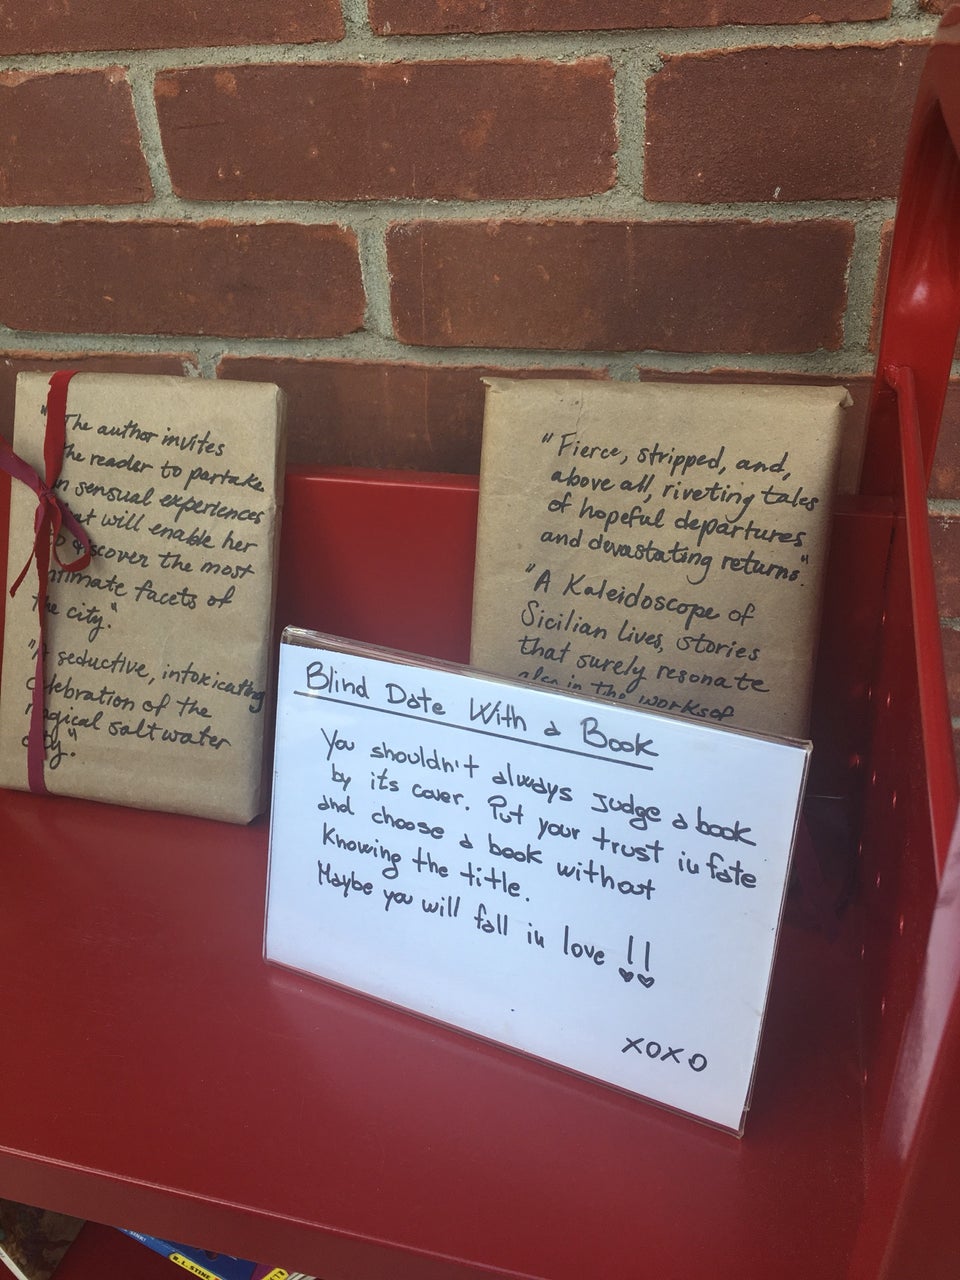 "The author invites
the reader to partake
in sensual experiences
that will enable her
to discover the most
intimate facets of
the city."
"A seductive, intoxicating
celebration of the
magical saltwater
city."
"Fierce, stripped, and,
above all, riveting tales
of hopeful departures
and devastating returns."
"A Kaleidoscope of
Sicilian Lives, stories
that surely resonate
also in the works of
Blind Date With a Book
You shouldn't always judge a book
by its cover. Put your trust in fate
and choose a book without
Knowing the title.
Maybe you will fall in love !!
XOXO
R.L. STINE